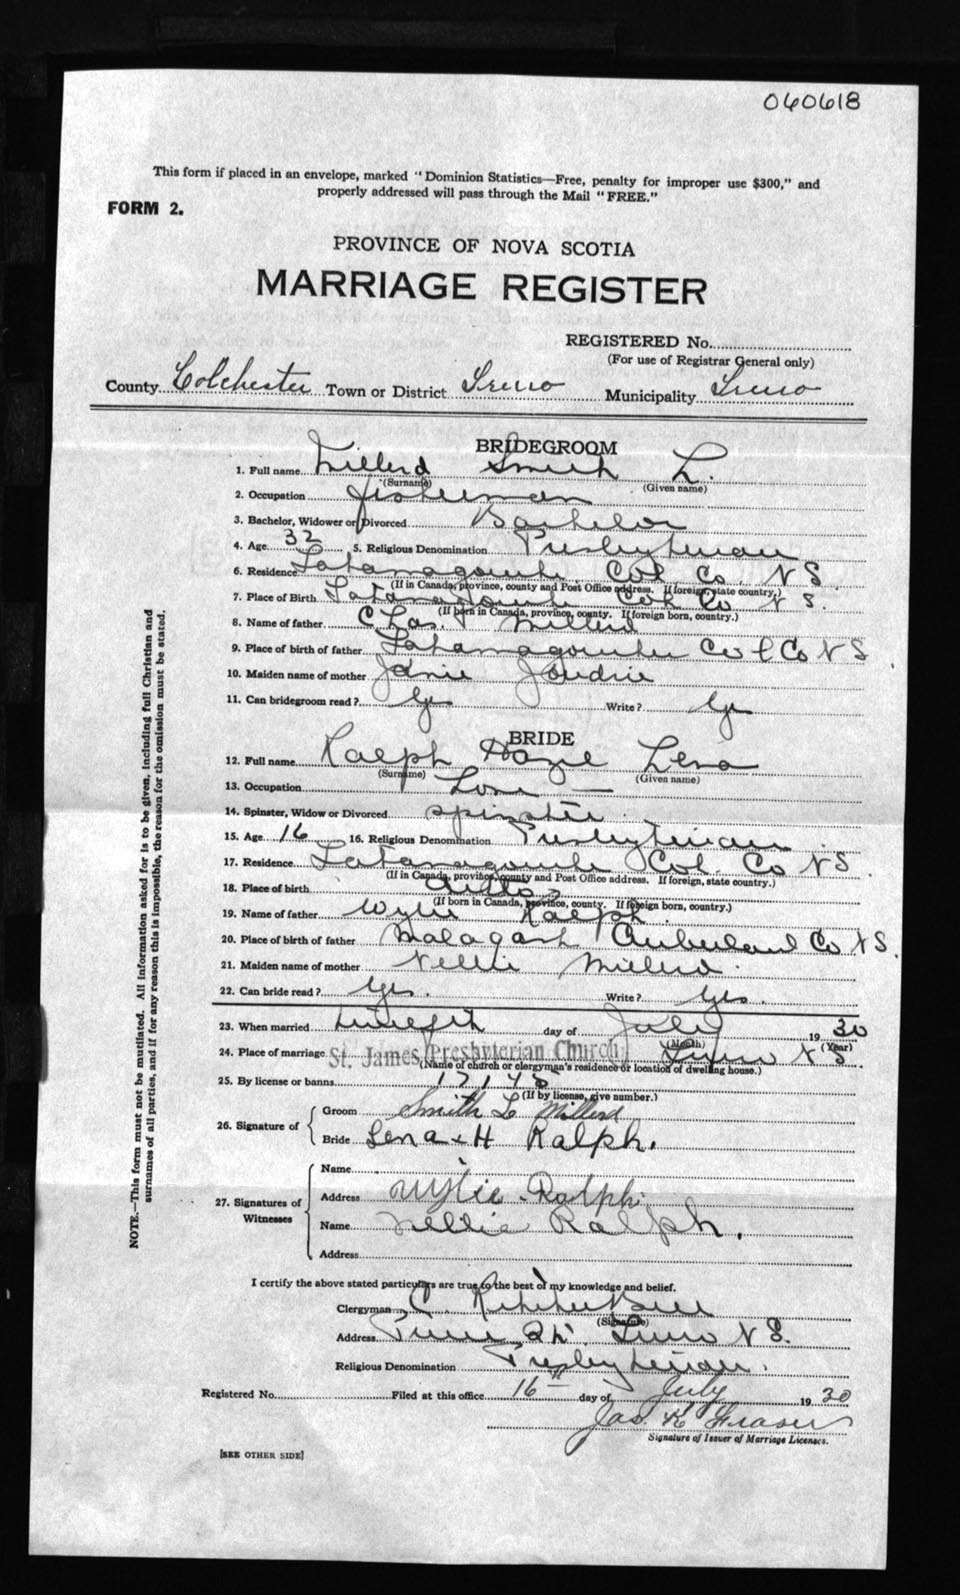 060618
This form if placed in an envelope, marked "Dominion Statistics—Free, penalty for improper use $300," and
properly addressed will pass through the Mail "FREE."
FORM 2.
PROVINCE OF NOVA SCOTIA
MARRIAGE REGISTER
REGISTERED No.
(For use of Registrar General only)
County Colchester Town or District Truro Municipality Truro
BRIDEGROOM
1. Full name Millerd Smith L.
(Surname) (Given name)
2. Occupation fisherman
3. Bachelor, Widower or Divorced Bachelor
4. Age 32 5. Religious Denomination Presbyterian
6. Residence Tatamagouche Col. Co. N S
(If in Canada, province, county and Post Office address. If foreign, state country.)
7. Place of Birth Tatamagouche Col Co N S.
(If born in Canada, province, county. If foreign born, country.)
8. Name of father Chas. Millerd
9. Place of birth of father Tatamagouche Col Co N S
10. Maiden name of mother Janie Joudrie
11. Can bridegroom read? Yes Write? Yes
BRIDE
12. Full name Ralph Hazel Lena
(Surname) (Given name)
13. Occupation
14. Spinster, Widow or Divorced spinster
15. Age 16 16. Religious Denomination Presbyterian
17. Residence Tatamagouche Col. Co N S.
(If in Canada, province, county and Post Office address. If foreign, state country.)
18. Place of birth ditto
(If born in Canada, province, county. If foreign born, country.)
19. Name of father Wylie Ralph.
20. Place of birth of father Malagash Cumberland Co N S.
21. Maiden name of mother Nellie Millerd.
22. Can bride read? Yes. Write? Yes.
23. When married day of July 1930
(Month) (Year)
24. Place of marriage St. James Presbyterian Church Truro N S.
(Name of church or clergyman's residence or location of dwelling house.)
25. By license or banns
(If by license, give number.)
26. Signature of
Groom Smith L Millerd
Bride Lena H Ralph.
27. Signatures of
Witnesses
Name
Address Wylie Ralph
Name Nellie Ralph.
Address
I certify the above stated particulars are true to the best of my knowledge and belief.
Clergyman C.
(Signature)
Address Truro N S.
Religious Denomination Presbyterian.
Registered No. Filed at this office 16th day of July 1930
Jas. K Fraser
Signature of Issuer of Marriage Licenses.
[SEE OTHER SIDE]
NOTE.—This form must not be mutilated. All information asked for is to be given, including full Christian and
surnames of all parties, and if for any reason this is impossible, the reason for the omission must be stated.